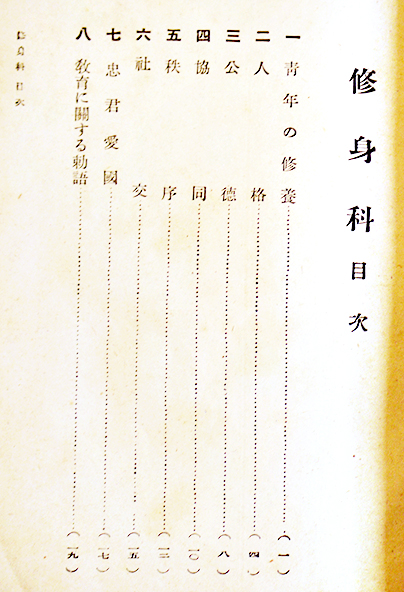 修身科目次
一 靑年の修養……(一)
二 人格……(四)
三 公德……(八)
四 協同……(一〇)
五 秩序……(一二)
六 社交……(一五)
七 忠君愛國……(一七)
八 敎育に關する勅語……(一九)
修身科目次